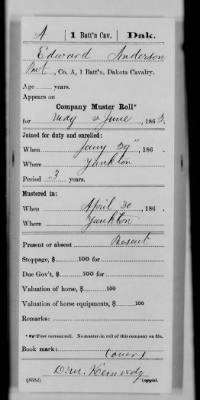 A | 1 Batt'n Cav. | Dak.
Edward Anderson
Pvt., Co. A, 1 Batt'n, Dakota Cavalry.
Age years.
Appears on
Company Muster Roll*
for May & June, 1863.
Joined for duty and enrolled:
When Jany 29, 186 .
Where Yankton
Period 3 years.
Mustered in:
When April 30, 186 .
Where Yankton
Present or absent Present
Stoppage, $ 100 for
Due Gov't, $ 100 for
Valuation of horse, $ 100
Valuation of horse equipments, $ 100
Remarks:
Book mark:
(over)
Copyist.